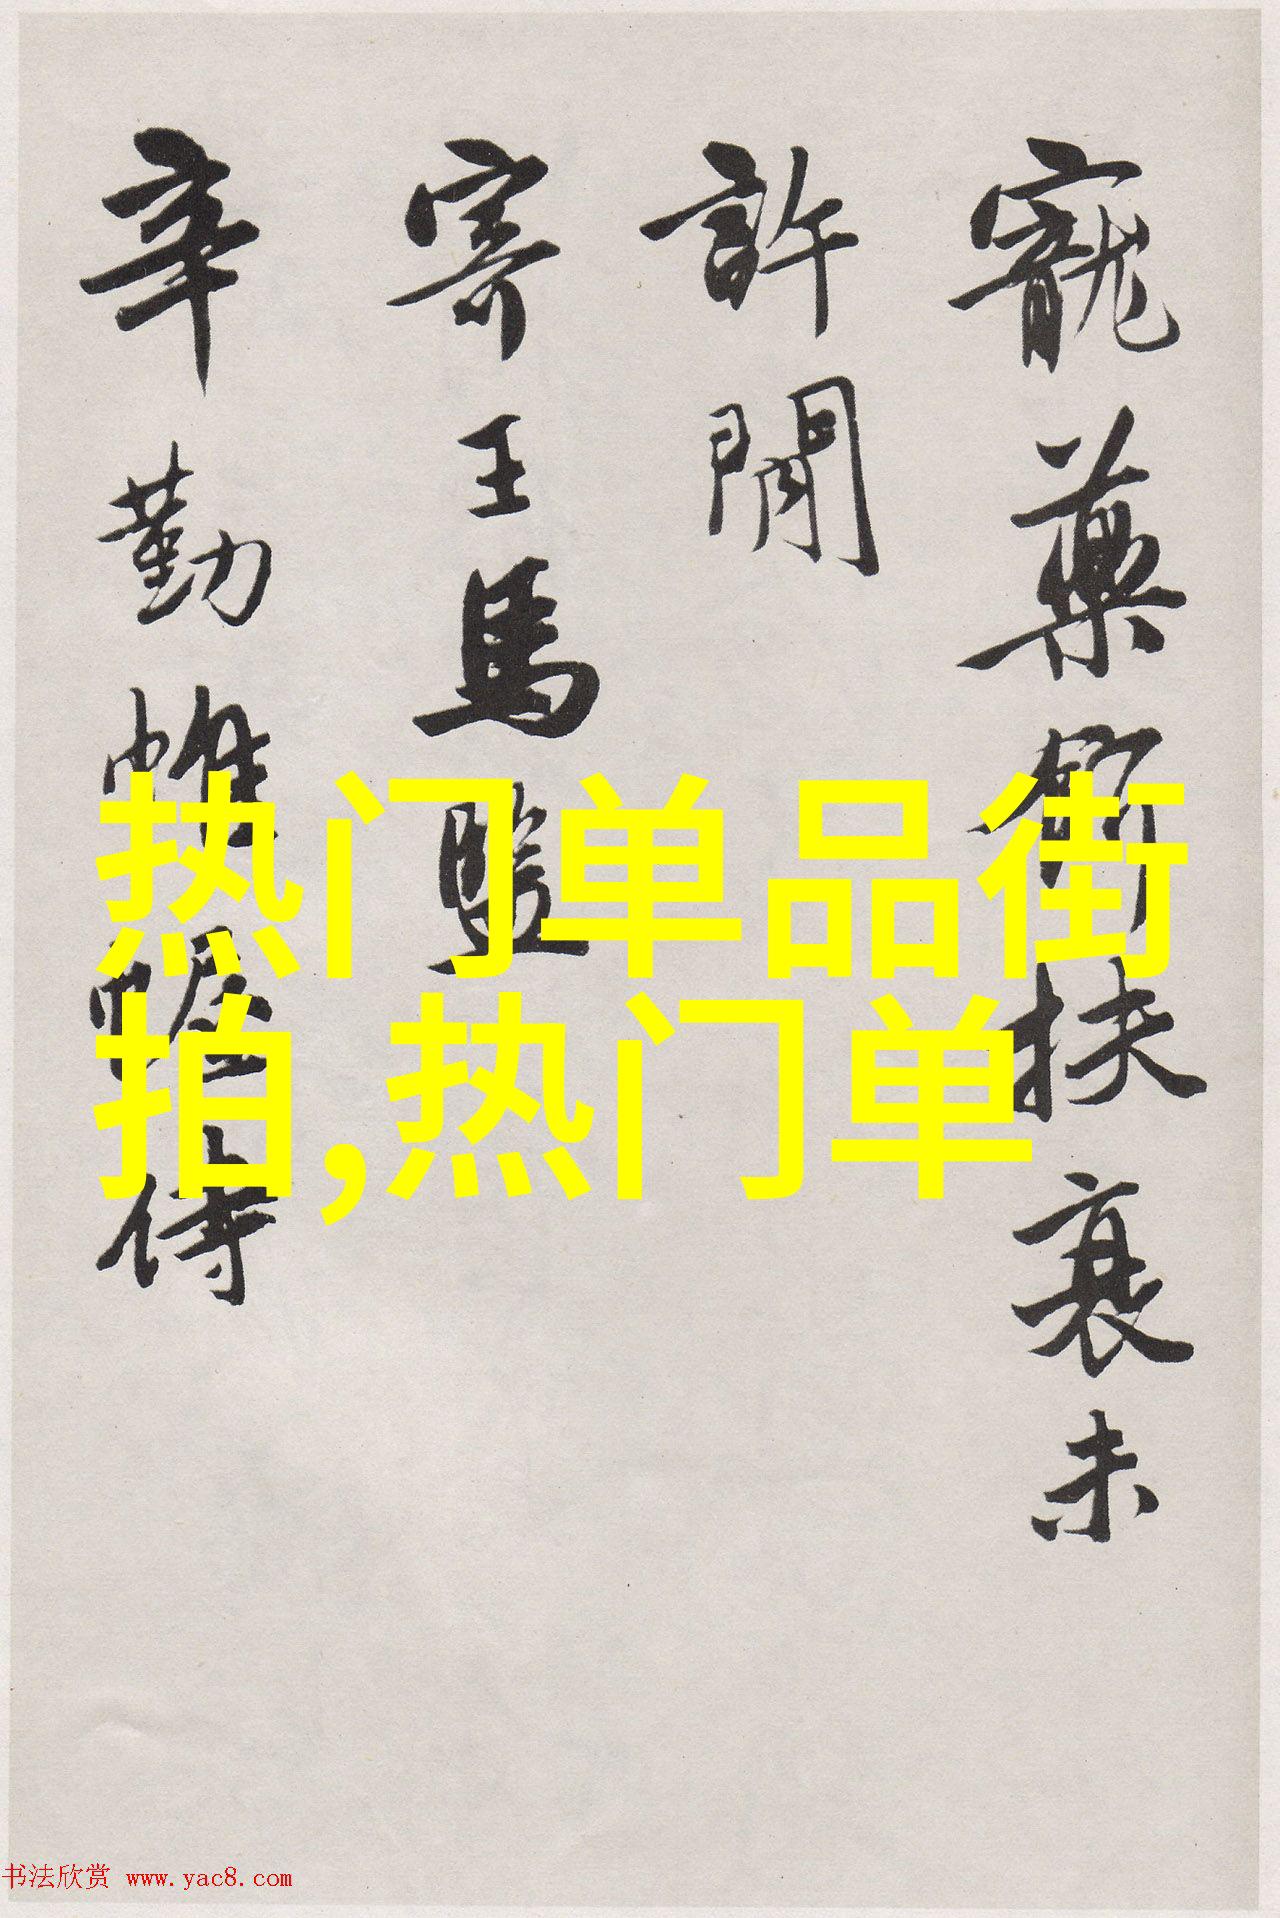 寵藥銜扶衰未
許閒
寄王馬監
辛勤帷幄侍
热门单品街
拍,热门单
书法欣赏 www.yac8.com